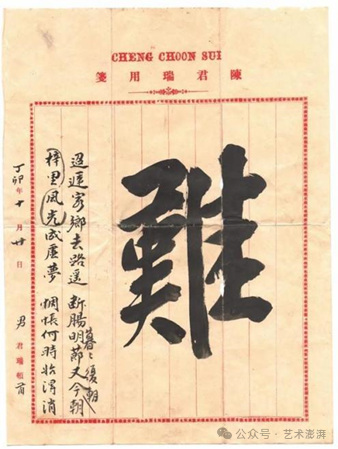 CHENG CHOON SUI
陳君瑞用箋
難
迢遞家鄉去路遥 断腸明節又今朝
暮〻復朝
梓里風光成塵夢 惆悵何時始得消
丁卯年十月廿日 男 君瑞頓首
公众号·艺术澎湃